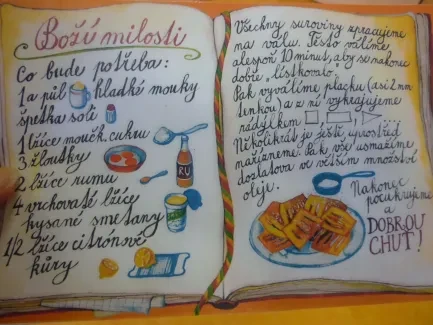 Boží milosti
Co bude potřeba:
1 a půl hladké mouky
špetka soli
1 lžíce moučk. cukru
3 žloutky
RU
2 lžíce rumu
4 vrchovaté lžíce
kysané smetany
1/2 lžíce citrónové
kůry
Všechny suroviny zpracujeme
na válu. Těsto válíme
alespoň 10 minut, aby se nakonec
dobře „lístkovalo“.
Pak vyválíme placku (asi 2 mm
tenkou) a z ní vykrajujeme
rádýlkem
Několikrát je ještě uprostřed
nařízneme. Pak vše usmažíme
dozlatova ve větším množství
oleje.
Nakonec
pocukrujeme
a
DOBROU
CHUŤ!